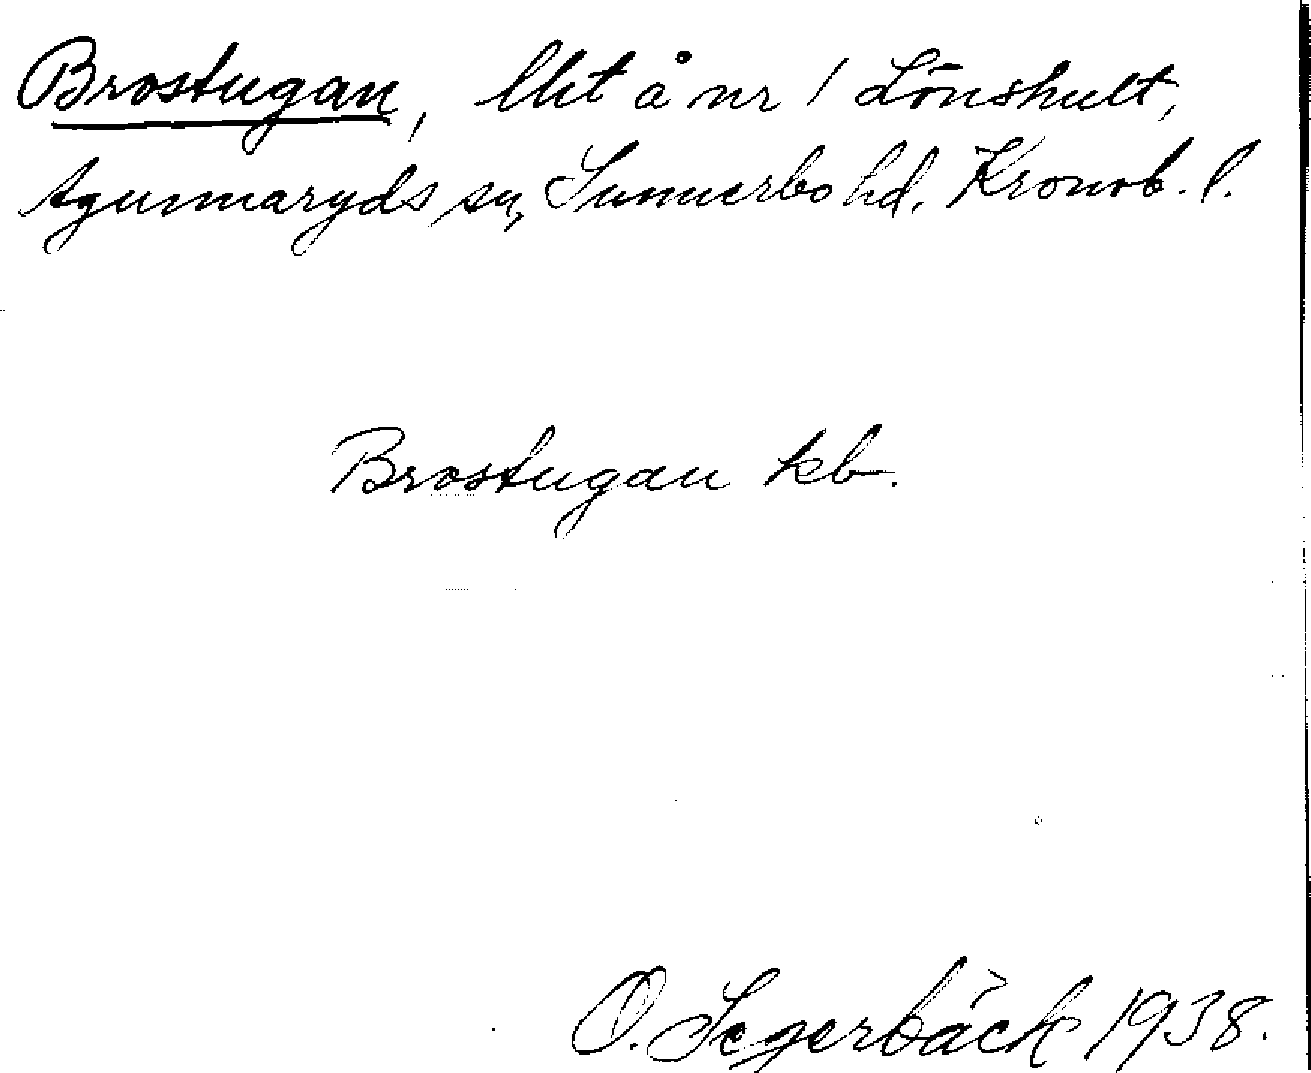 Brostugan, lht å nr 1 Lönshult,
Agunnaryds sn, Sunnerbo hd. Kronob. l.
Brostugan kb.
O. Segerbäck 1938.